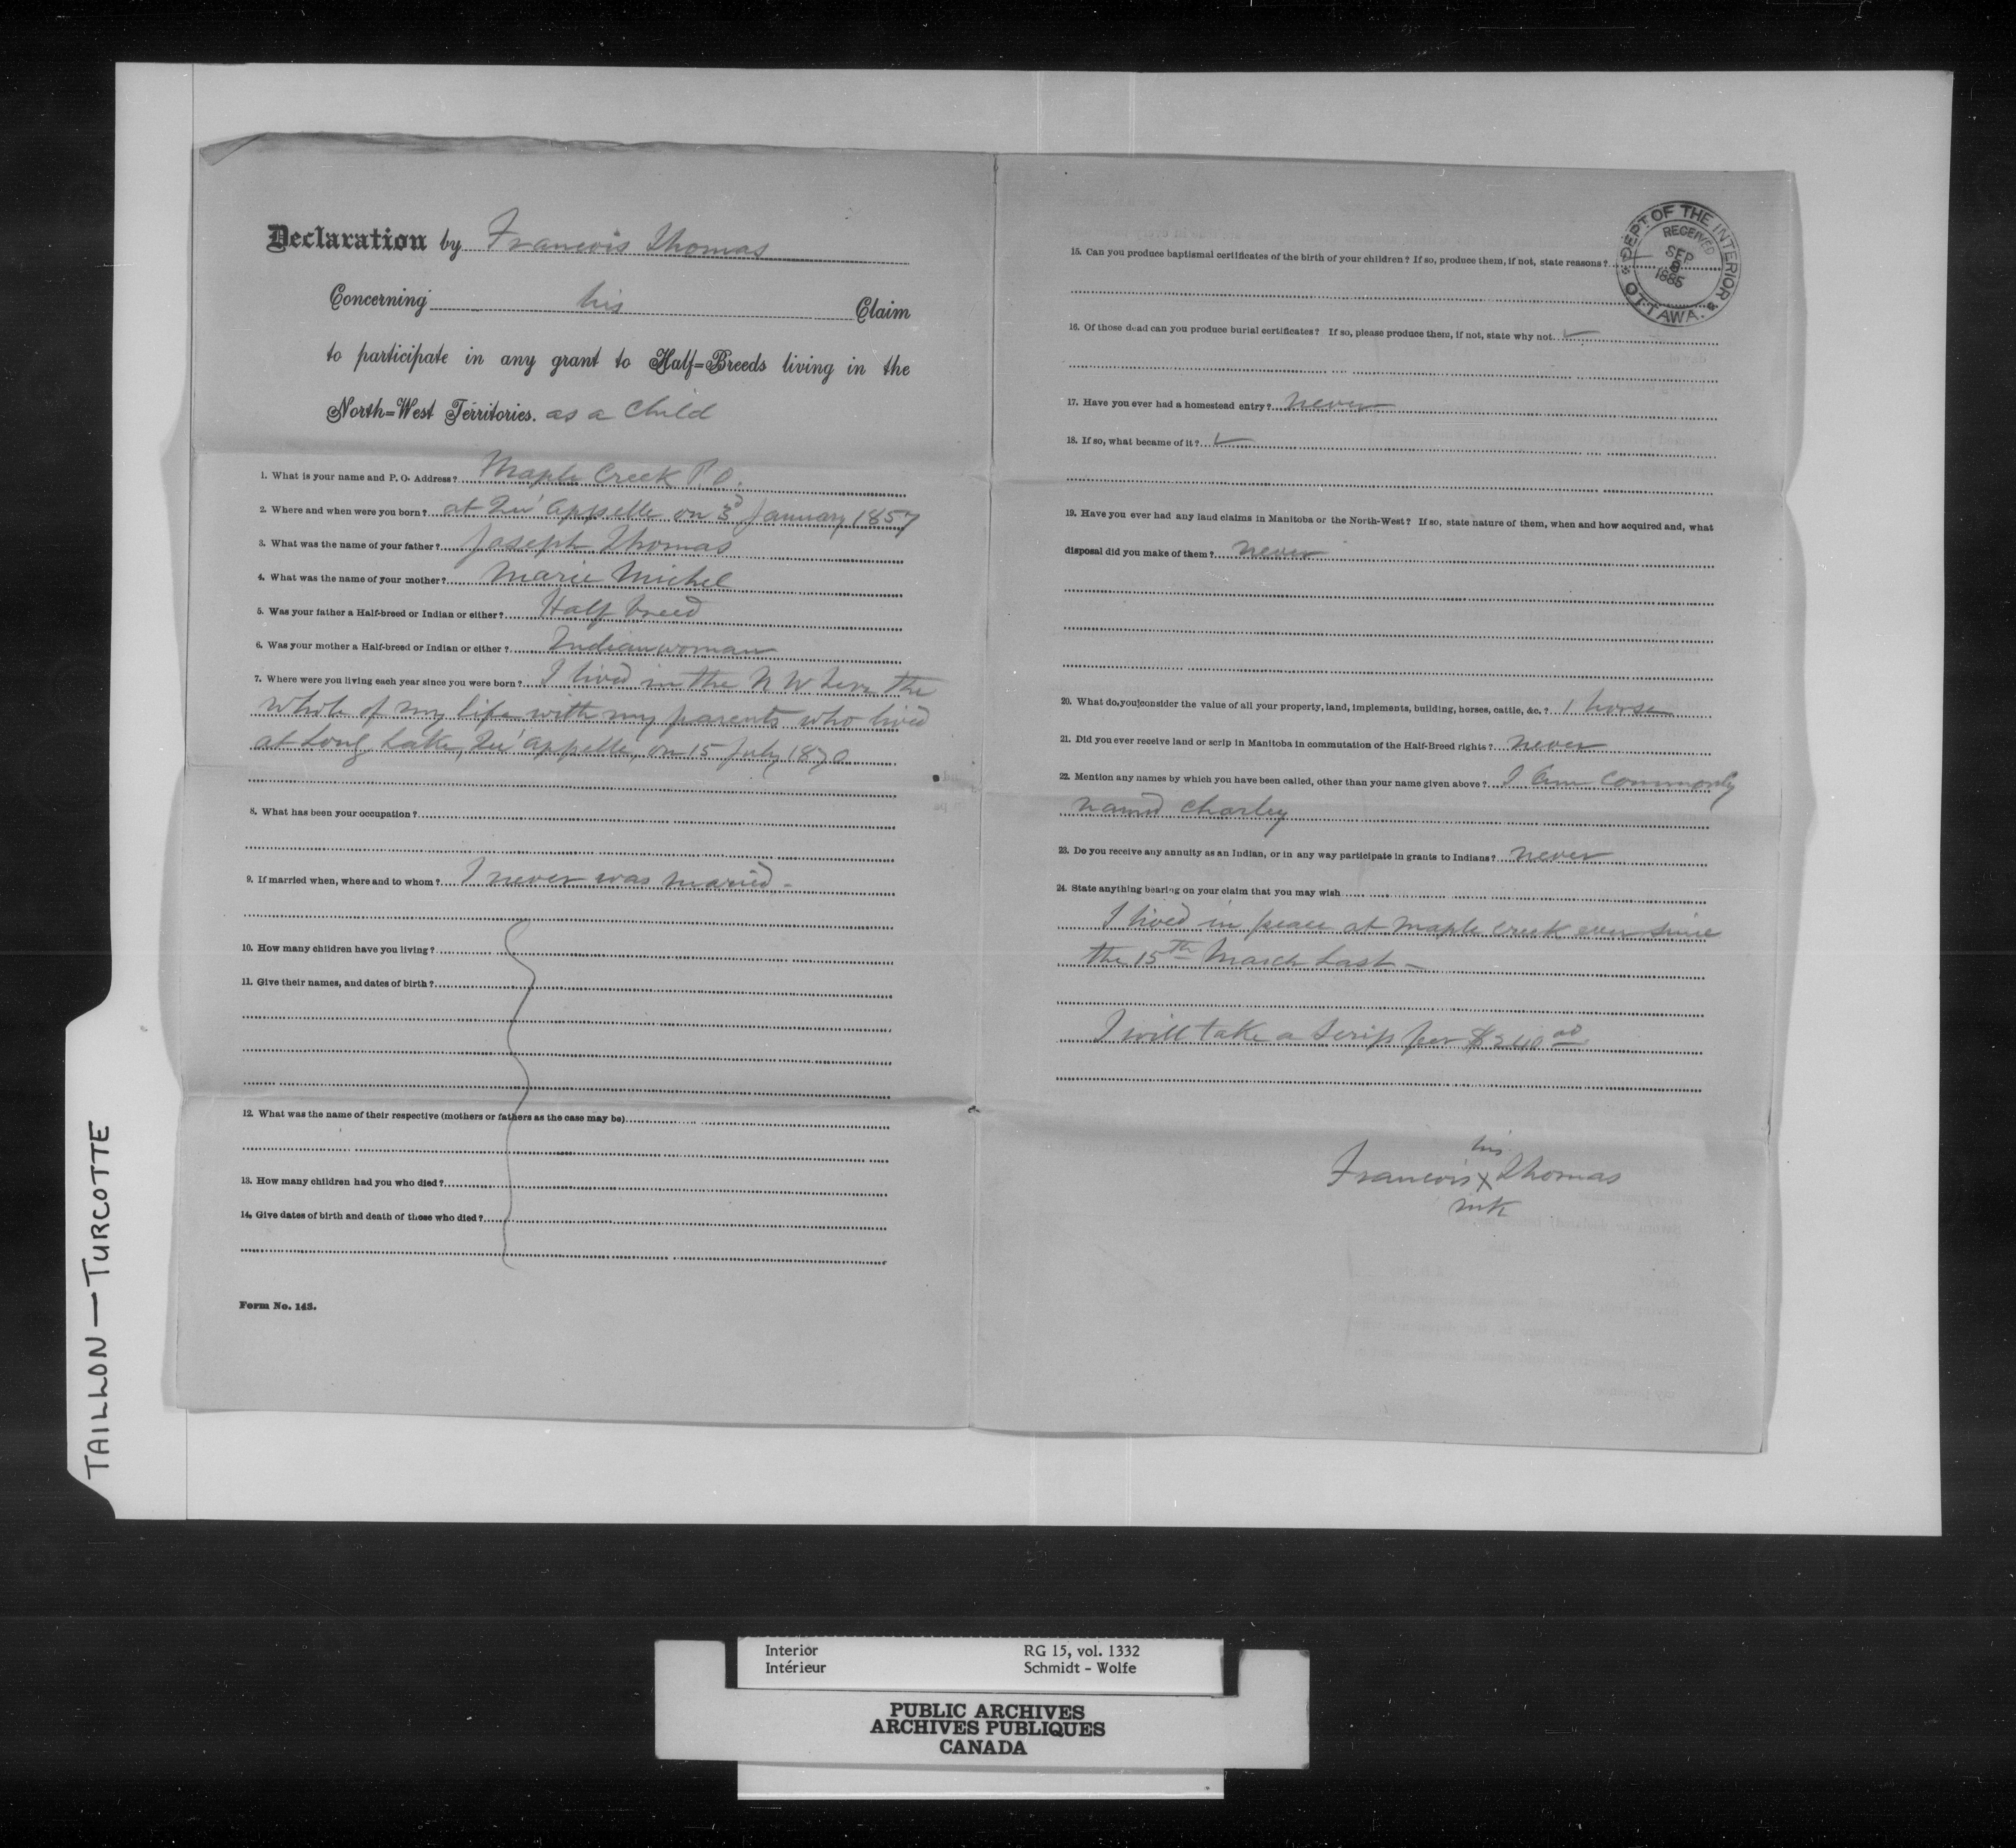 Declaration by Francois Thomas
Concerning his Claim
to participate in any grant to Half=Breeds living in the
North=West Territories. as a Child
1. What is your name and P. O. Address? Maple Creek P.O.
2. Where and when were you born? at Qu'Appelle on 3d January 1857
3. What was the name of your father? Joseph Thomas
4. What was the name of your mother? Marie Michel
5. Was your father a Half-breed or Indian or either? Half breed
6. Was your mother a Half-breed or Indian or either? Indian woman
7. Where were you living each year since you were born? I lived in the N W Terr the
whole of my life with my parents who lived
at Long Lake, Qu'Appelle, on 15 July 1870
8. What has been your occupation?
9. If married when, where and to whom? I never was maried -
10. How many children have you living?
11. Give their names, and dates of birth?
12. What was the name of their respective (mothers or fathers as the case may be)
13. How many children had you who died?
14. Give dates of birth and death of those who died?
Form No. 143.
DEPT. OF THE INTERIOR
RECEIVED
SEP
1885
OTTAWA.
15. Can you produce baptismal certificates of the birth of your children? If so, produce them, if not, state reasons?
16. Of those dead can you produce burial certificates? If so, please produce them, if not, state why not
17. Have you ever had a homestead entry? never
18. If so, what became of it?
19. Have you ever had any land claims in Manitoba or the North-West? If so, state nature of them, when and how acquired and, what
disposal did you make of them? never
20. What do you consider the value of all your property, land, implements, building, horses, cattle, &c.? 1 horse
21. Did you ever receive land or scrip in Manitoba in commutation of the Half-Breed rights? never
22. Mention any names by which you have been called, other than your name given above? I am commonly
named Charley
23. Do you receive any annuity as an Indian, or in any way participate in grants to Indians? never
24. State anything bearing on your claim that you may wish
I lived in peace at Maple Creek ever since
the 15th March last -
I will take a scrip for $240 00
his
Francois X Thomas
mk
TAILLON — TURCOTTE
Interior RG 15, vol. 1332
Intérieur Schmidt - Wolfe
PUBLIC ARCHIVES
ARCHIVES PUBLIQUES
CANADA